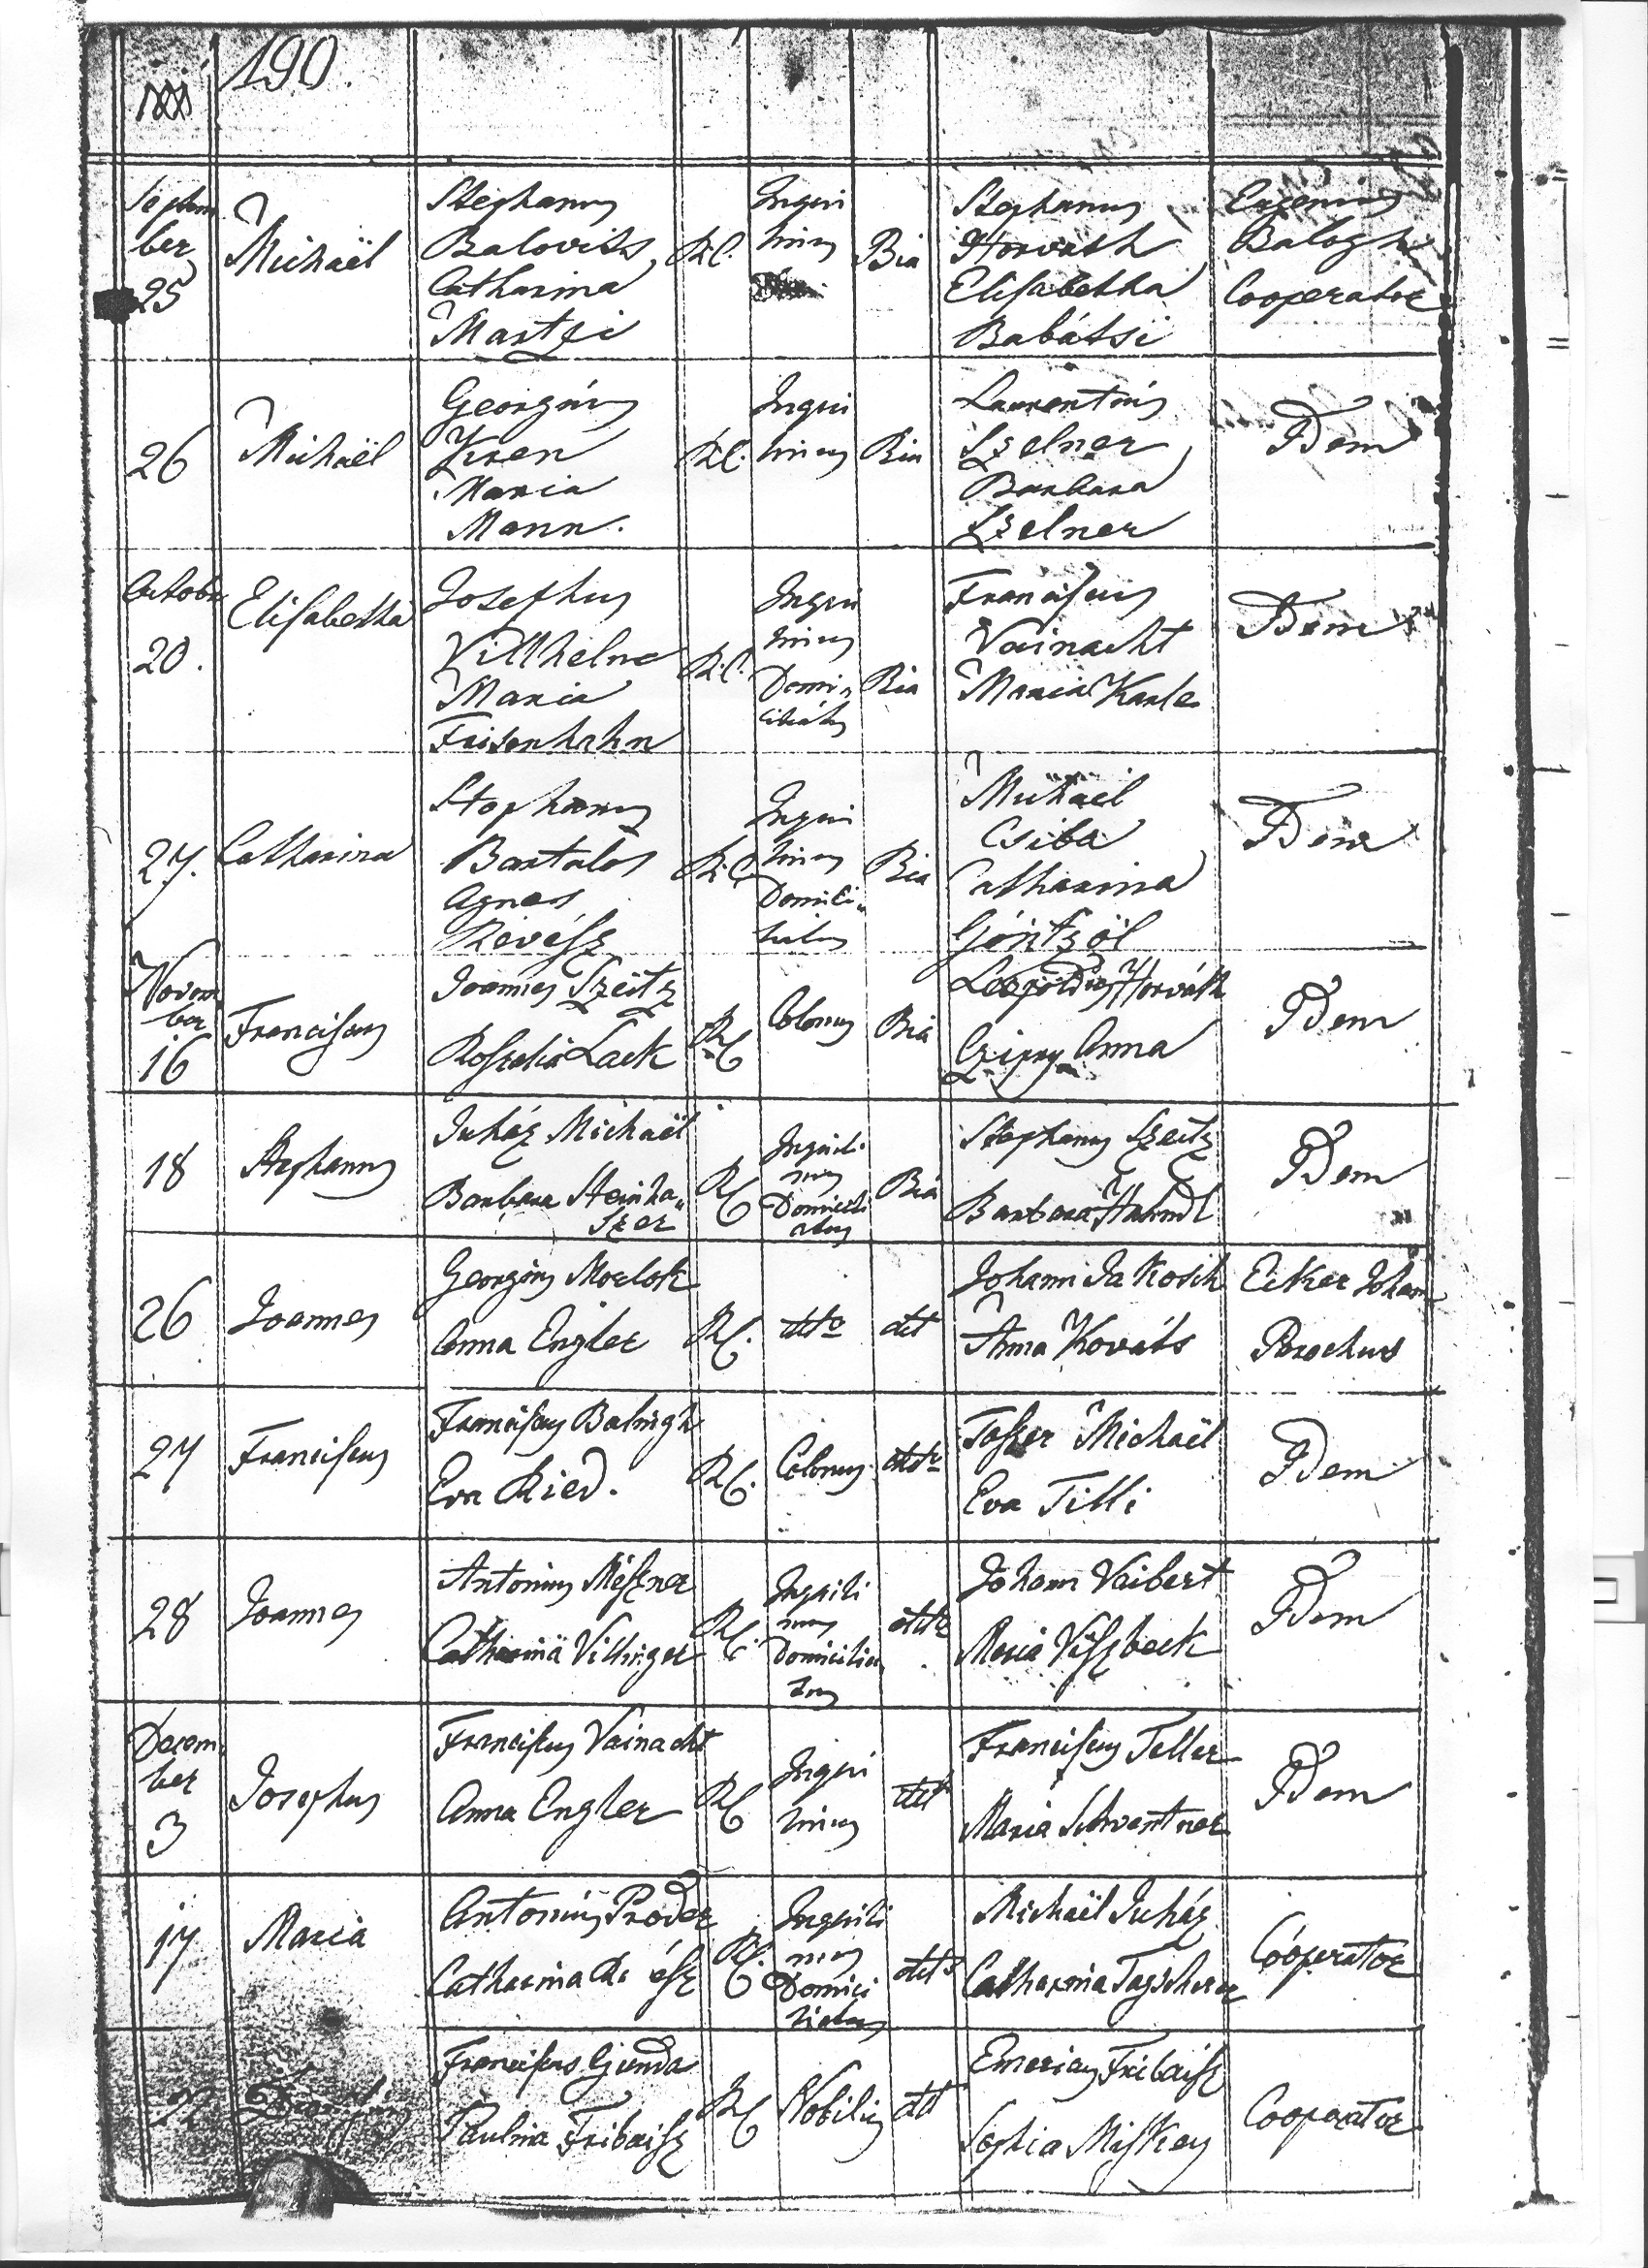 190.
Septem
ber
25
Michaël
Stephanus
Balovits
Catharina
Martzi
R.C.
Inqui
linus
Bia
Stephanus
Horváth
Elisabetha
Babátsi
Eugenius
Balogh
Cooperator
26
Michaël
Georgius
Kren
Maria
Mann.
R.C.
Inqui
linus
Bia
Laurentius
Szelner
Barbara
Szelner
Idem
Octobr
20.
Elisabetha
Josephus
Villhelm
Maria
Frisenhahn
R.C.
Inqui
linus
Domi„
ciliatus
Bia
Franciscus
Vainacht
Maria Karle
Idem
27.
Catharina
Stephanus
Bartalos
Agnes
Révész
R.C.
Inqui
linus
Domici„
liatus
Bia
Michaël
Csiba
Catharina
Göntzöl
Idem
Novem
ber
16
Franciscus
Joannes Szeitz
Rosalia Lack
RC
Colonus
Bia
Leopoldus Horváth
Anna
Idem
18
Stephanus
Juház Michaël
Barbara Steinha„
szer
RC
Inquili
nus
Domicili
atus
Bia
Stephanus Szeitz
Barbara Hahndl
Idem
26
Joannes
Georgius Morlok
Anna Engler
RC.
dtto
dtt
Johann Jakosch
Anna Kováts
Ecker Johann
Parochus
27
Franciscus
Franciscus Balingh
Eva Ried.
RC.
Colonus
dtto
Tasser Michaël
Eva Tilli
Idem
28
Joannes
Antonius Meszner
Catharina Villinger
RC.
Inquili
nus
Domicilia
tus
dtto
Johann Vaibert
Maria Viszbeck
Idem
Decem
ber
3
Josephus
Franciscus Vainacht
Anna Engler
RC
Inqui
linus
dtt
Franciscus Teller
Maria Schventner
Idem
17
Maria
Antonius Proder
Catharina
RC.
Inquili
nus
Domici
liatus
dtto
Michaël Juház
Catharina Tagscherer
Cooperator
Franciscus Gjunda
Paulina Fribaisz
RC
Nobilis
dtt
Emericus Fribaisz
Sophia Miskey
Cooperator